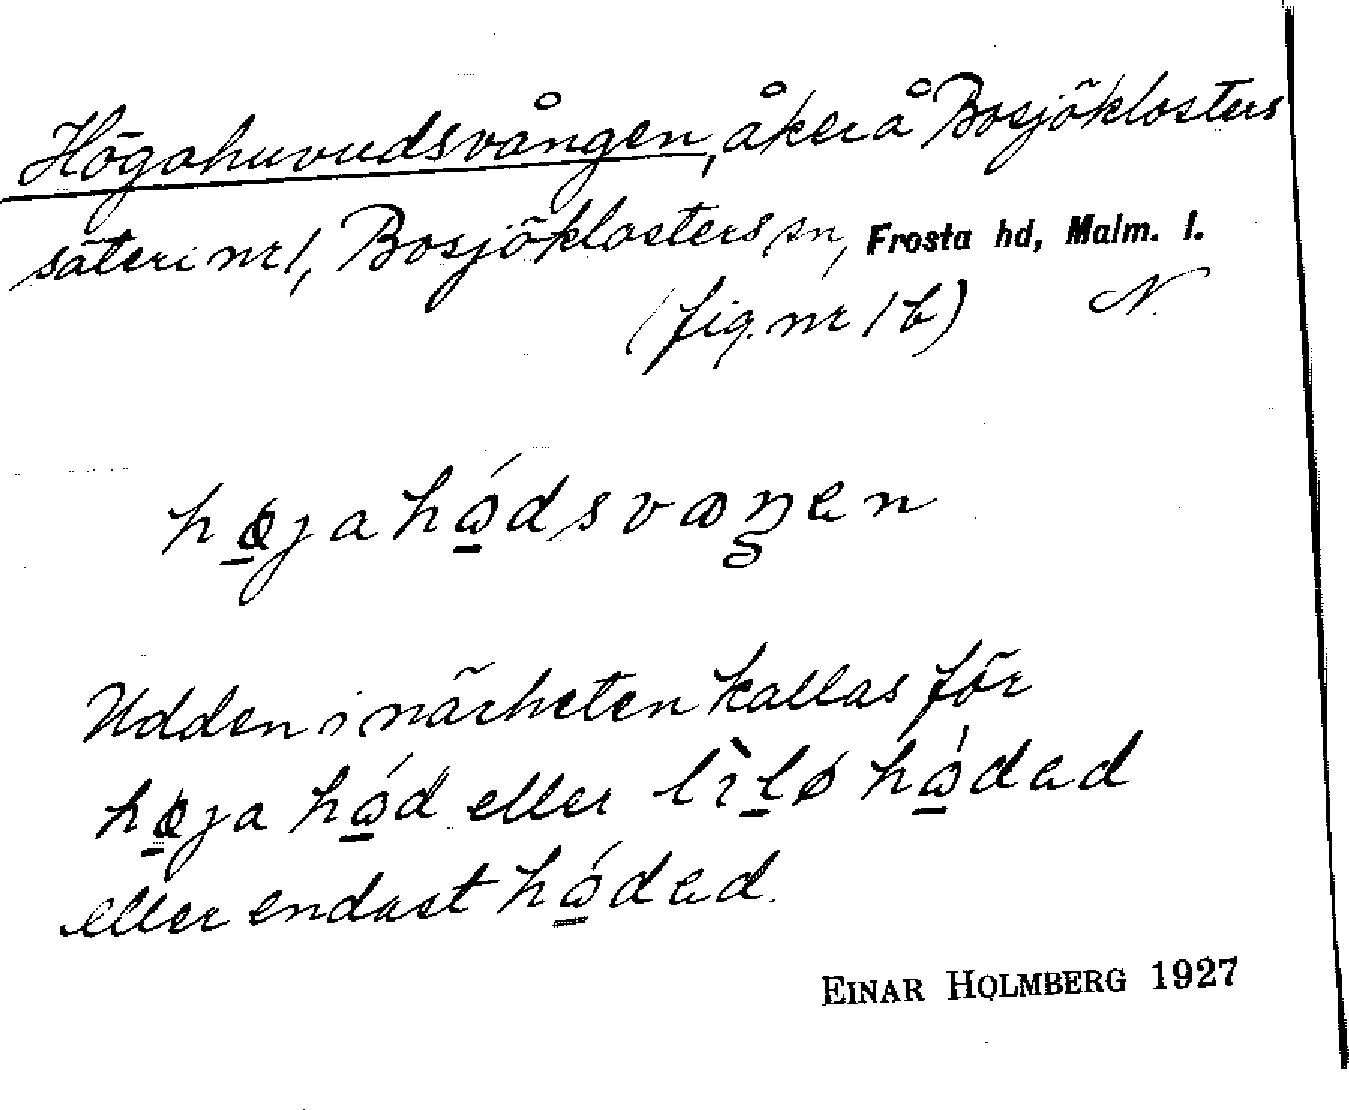 Högahuvudsvången, åker å Bosjöklosters
säteri nr 1, Bosjöklosters sn, Frosta hd, Malm. l.
(fig. nr 1 b) N.
hø̱jahɷ̱́dsvɷŋen
Udden i närheten kallas för
hø̱ja hɷ̱́d eller lìḻø hɷ̱́dad
eller endast hɷ̱́dad.
EINAR HOLMBERG 1927